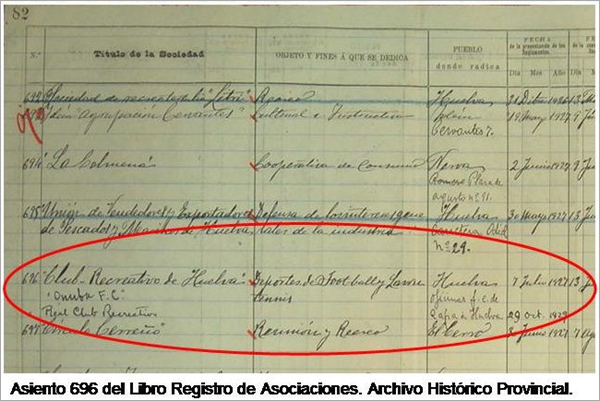 82
N.º Título de la Sociedad OBJETO Y FINES Á QUE SE DEDICA PUEBLO donde radica FECHA de la presentación de los Reglamentos. FECHA
Día Mes Año Día
692 Sociedad de recreo Recreo Huelva 21 1926 13
Agrupación Cervantes" Cultural e Instructivo
Cervantes 7. 19 Mayo 1927 9
694 "La Colmena" Cooperativa de Consumo Nerva 2 Junio 1927 9
Romero Plaza de
agosto nº 91.
695 Unión de Vendedores y Exportadores Defensa de los intereses gene Huelva 30 Mayo 1927 13
de Pescados y Mariscos de Huelva rales de la industria
nº 29.
696 "Club-Recreativo de Huelva" Deportes de Football y Lawn Huelva 7 Julio 1927 13
"Onuba F.C" tennis f.c. de
Real Club Recreativo Zafra a Huelva 29 oct. 1929
697 Círculo Cerreño" Reunión y Recreo El Cerro 3 Junio 1927 7
Asiento 696 del Libro Registro de Asociaciones. Archivo Histórico Provincial.